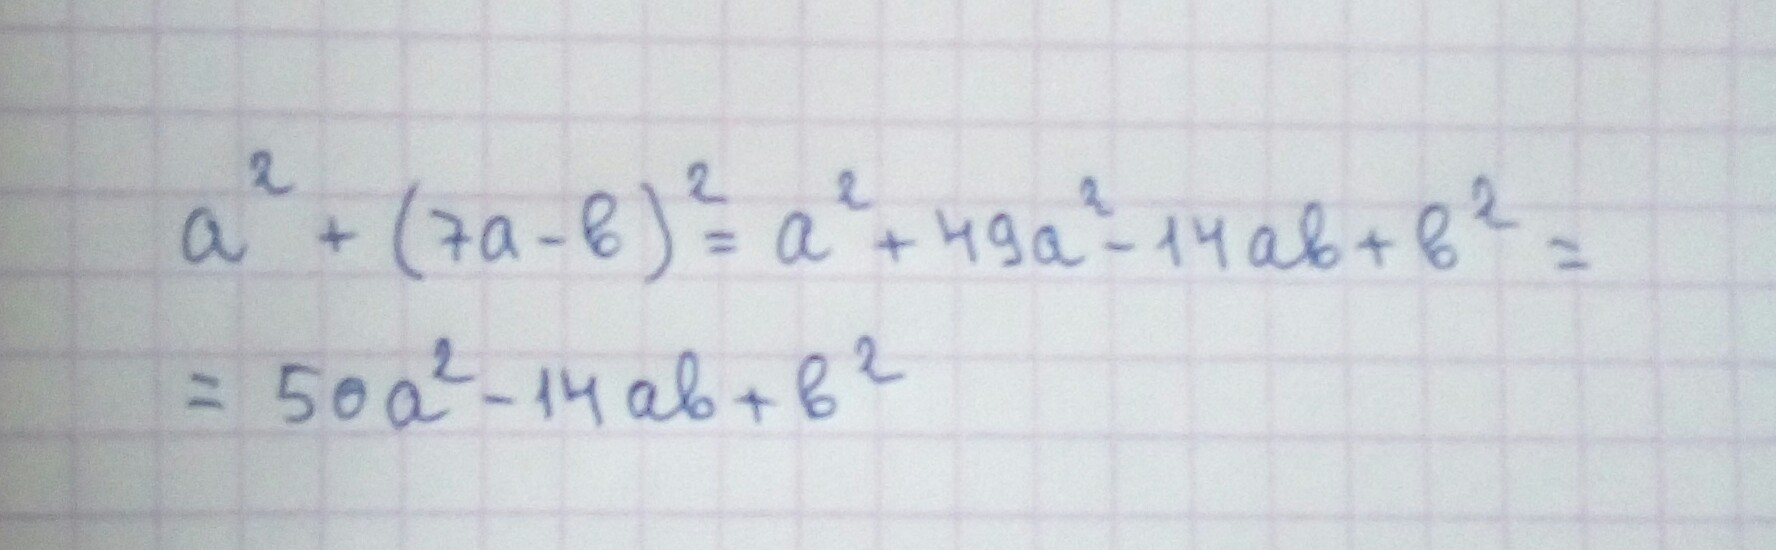 a² + (7a - b)² = a² + 49a² - 14ab + b² =
= 50a² - 14ab + b²